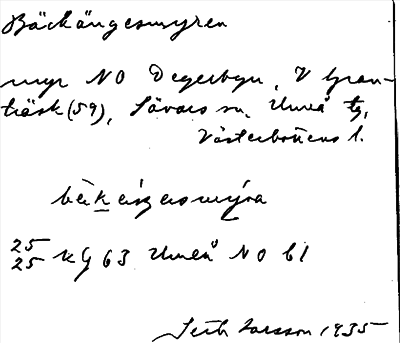 Bäckängesmyren
myr NO Degerbyn, V Gran-
träsk (59), Sävars sn, Umeå tg,
Västerbottens l.
25/25 KG 63 Umeå NO bl
Seth Larsson 1935